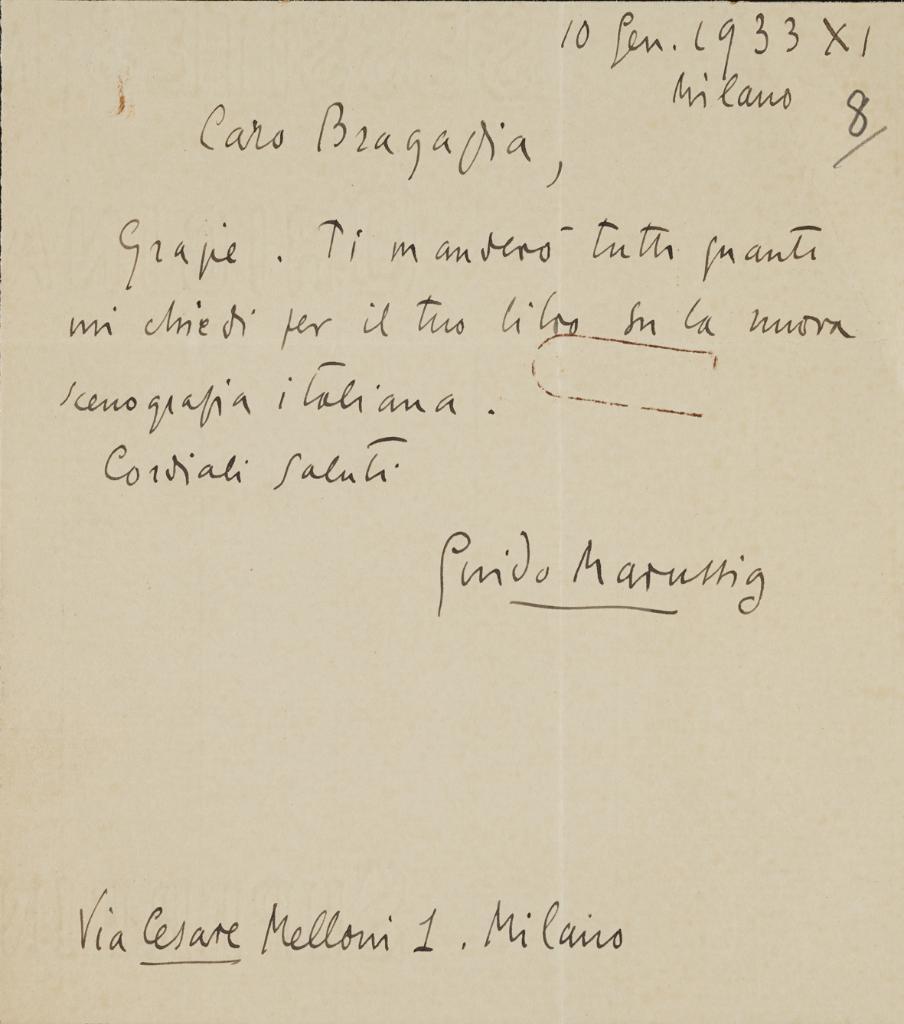 10 Gen. 1933 XI
Milano
8
Caro Bragaglia,
Grazie. Ti manderò tutti quanti
mi chiedi per il tuo libro su la nuova
scenografia italiana.
Cordiali saluti
Guido Marussig
Via Cesare Melloni 1. Milano